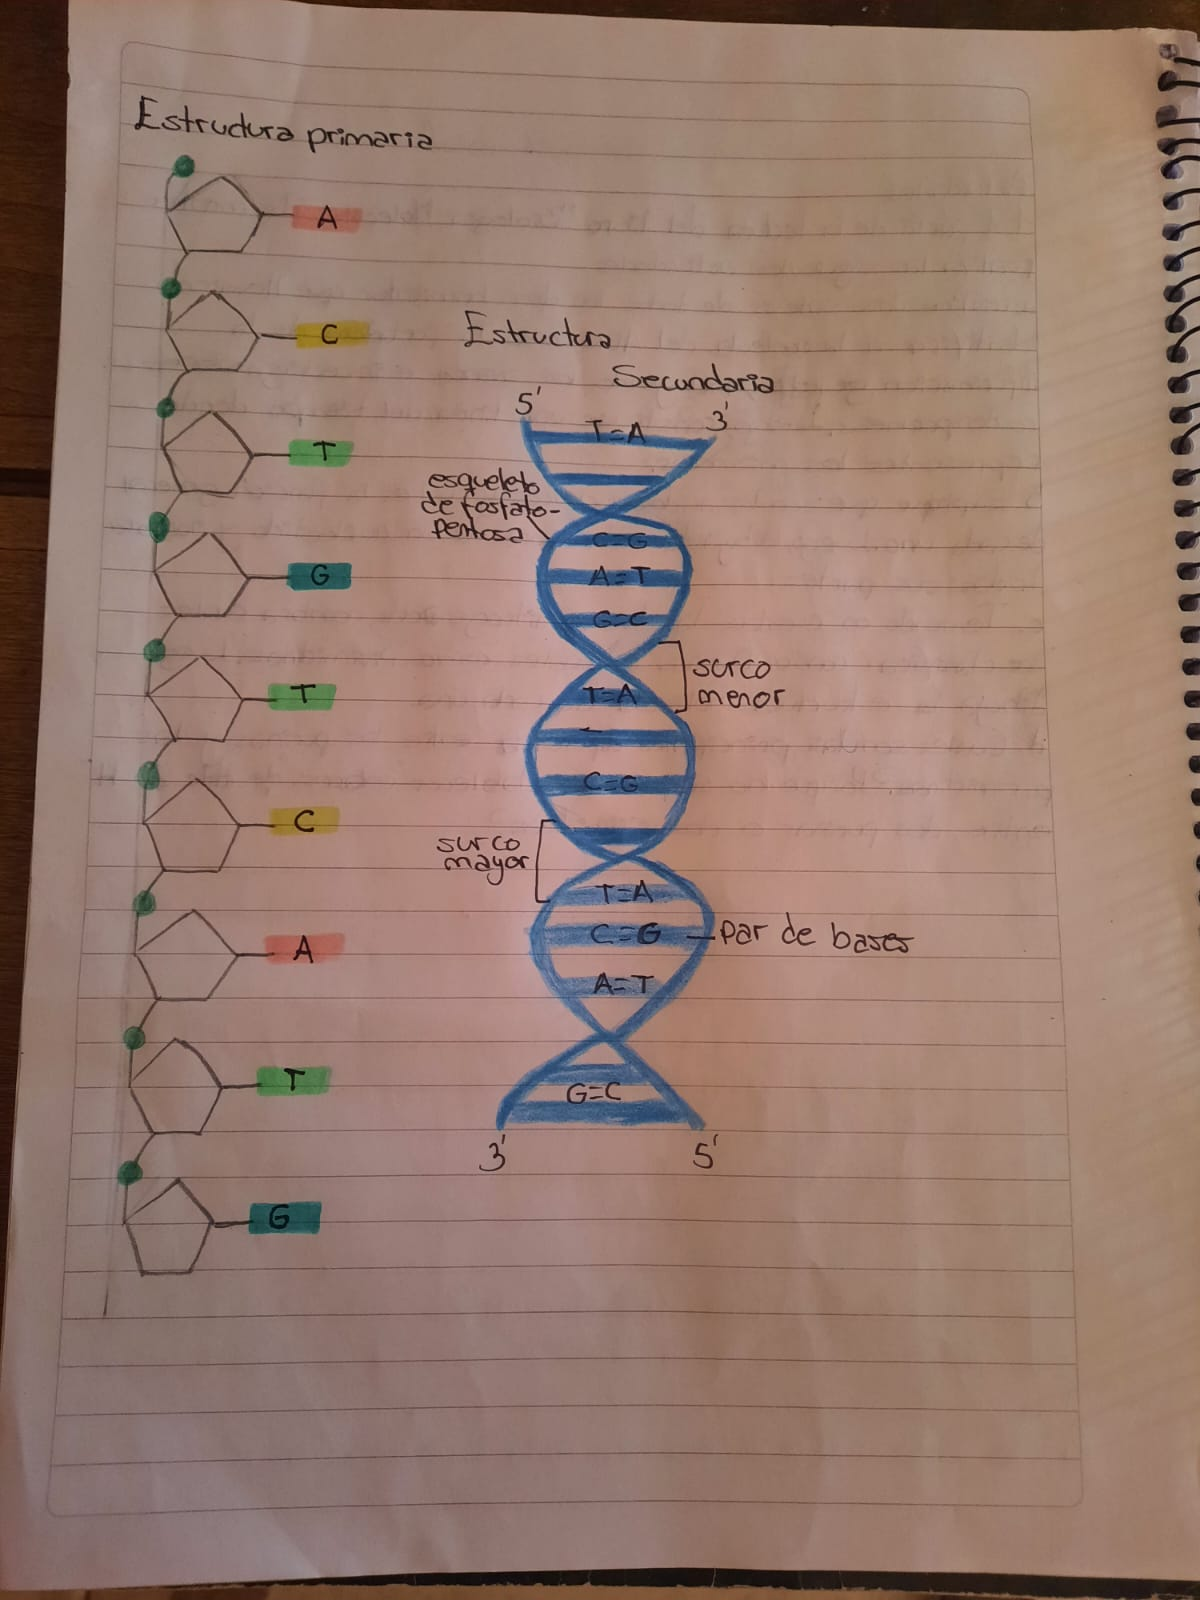 Estructura primaria
A
C
T
G
T
C
A
T
G
Estructura
Secundaria
5' 3'
T=A
esqueleto
de fosfato-
pentosa
C=G
A=T
G=C
surco
menor
T=A
C=G
surco
mayor
T=A
C=G
par de bases
A=T
G=C
3' 5'